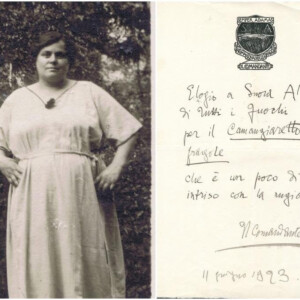 Elogio a Suora Al
di tutti i fuochi
per il Camangiaretto
fragole
che è un poco di
intriso con la rugia
Il Comandante
11 giugno 1923